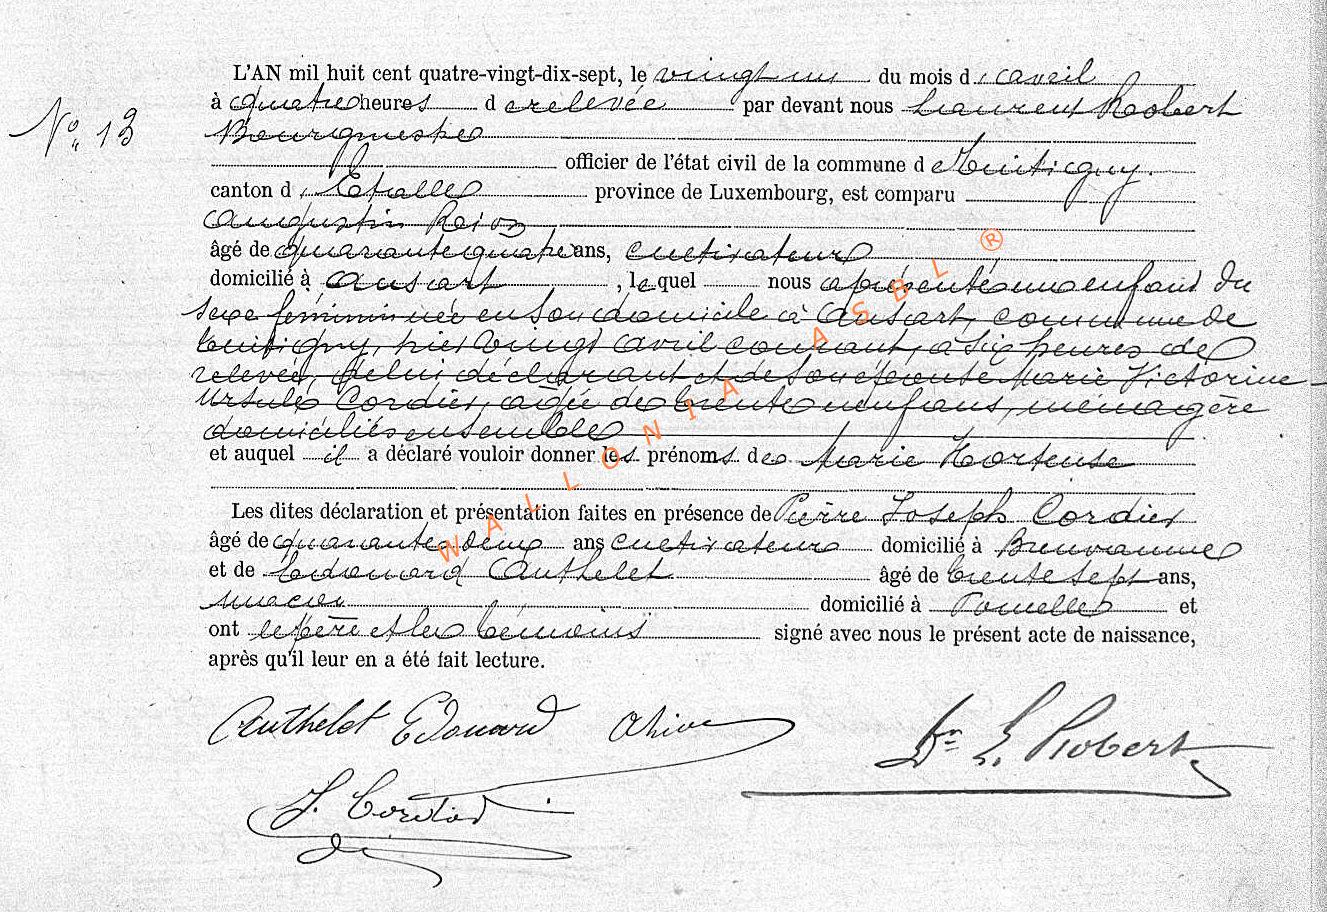 L'AN mil huit cent quatre-vingt-dix-sept, le vingt un du mois d'avril
N° 13
à quatre heures de relevée par devant nous Laurent Robert
Bourgmestre
officier de l'état civil de la commune de Tintigny
canton d'Etalle province de Luxembourg, est comparu
Augustin
âgé de quarante quatre ans, cultivateur
domicilié à Ansart, lequel nous a présenté un enfant du
sexe féminin née en son domicile à Ansart, commune de
Tintigny, hier vingt avril courant, à six heures de
relevée, de lui déclarant et de son épouse Marie Victorine
Ursule Cordier, agée de trente neuf ans, ménagère
domiciliés ensemble
et auquel il a déclaré vouloir donner les prénoms de Marie Hortense
Les dites déclaration et présentation faites en présence de Pierre Joseph Cordier
âgé de quarante deux ans cultivateur domicilié à Breuvanne
et de Edouard Authelet âgé de trente sept ans,
domicilié à et
ont le père et les témoins signé avec nous le présent acte de naissance,
après qu'il leur en a été fait lecture.
Authelet Edouard
Bn L. Robert
J. Cordier
WALLONIA ASBL ®